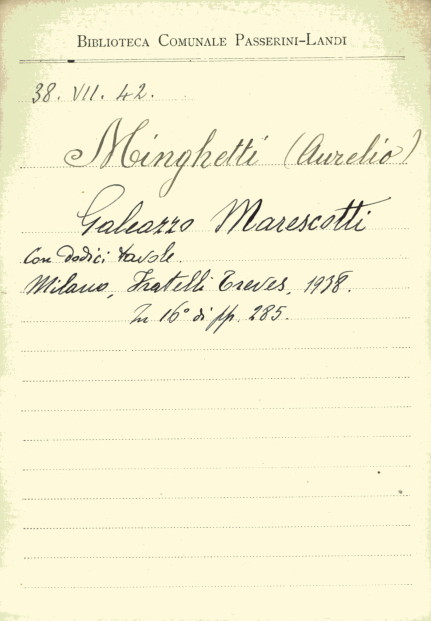 BIBLIOTECA COMUNALE PASSERINI-LANDI
38. VII. 42.
Minghetti (Aurelio)
Galeazzo Marescotti
con dodici tavole.
Milano, Fratelli Treves, 1938.
In 16° di pp. 285.